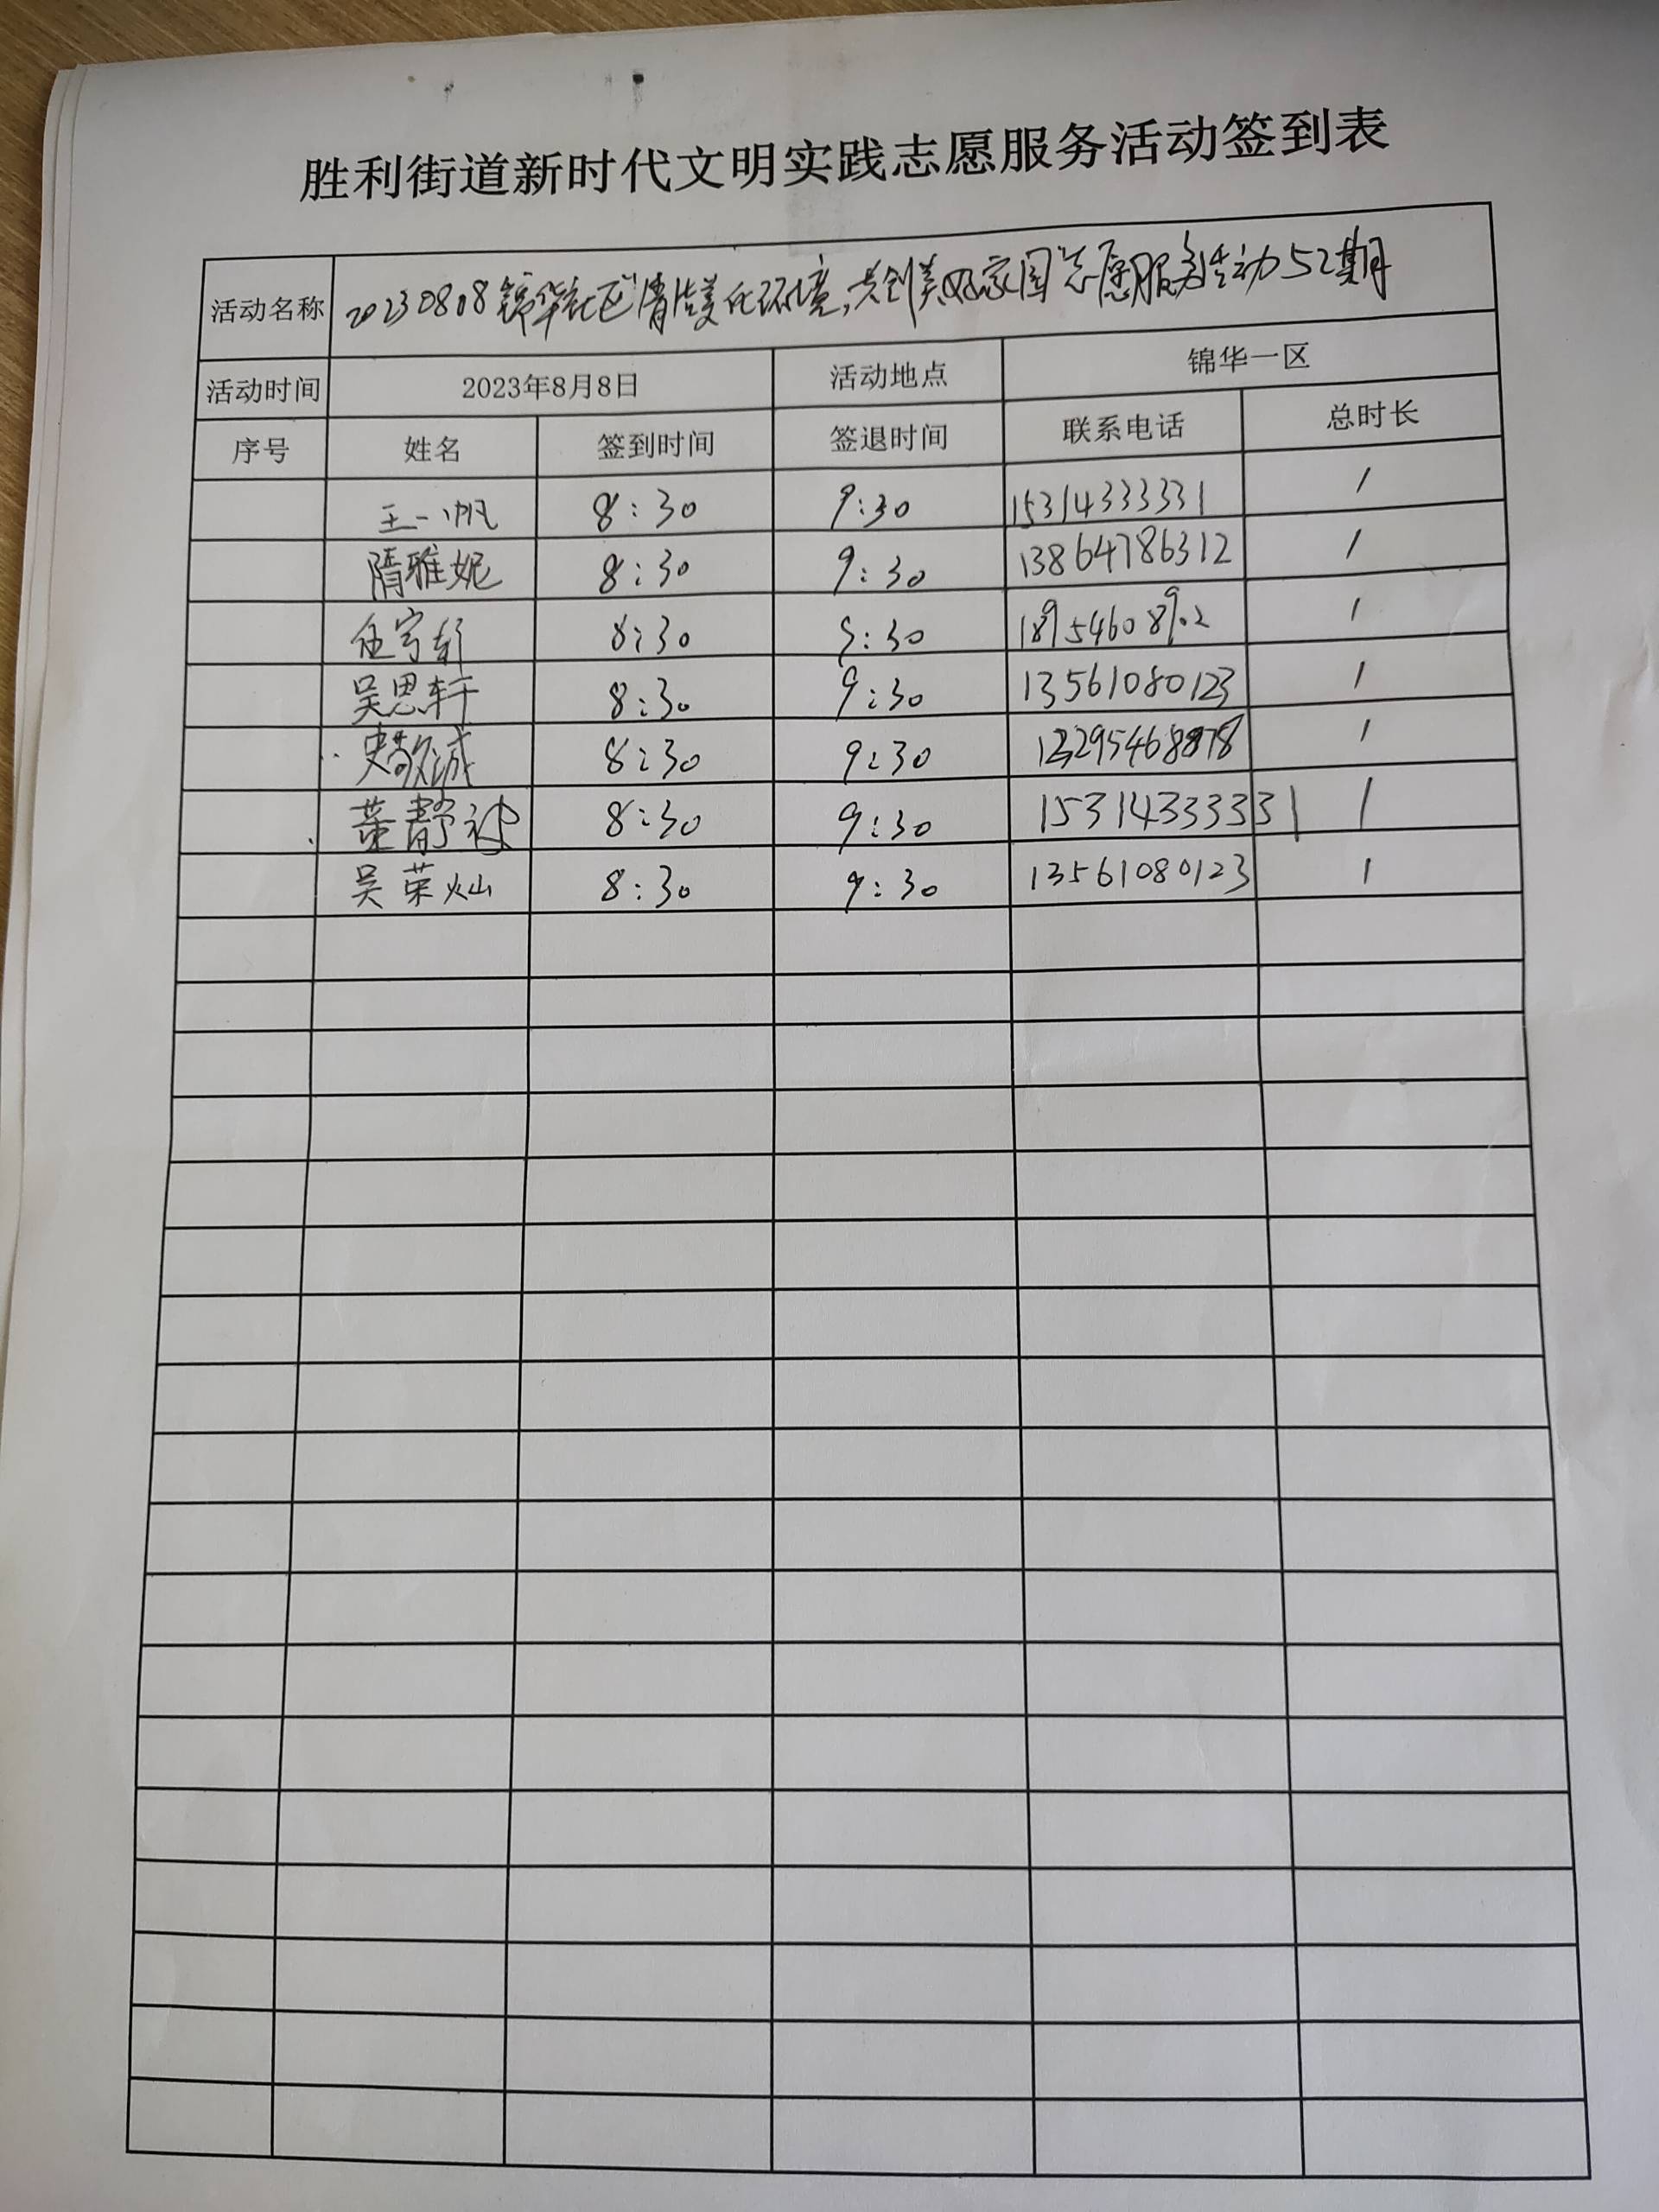 胜利街道新时代文明实践志愿服务活动签到表
活动名称 20230808锦华社区"清洁美化环境,共创美好家园"志愿服务活动52期
活动时间 2023年8月8日 活动地点 锦华一区
序号 姓名 签到时间 签退时间 联系电话 总时长
王一帆 8:30 9:30 15314333331 1
隋雅妮 8:30 9:30 13864786312 1
任宇轩 8:30 9:30 1
吴思轩 8:30 9:30 13561080123 1
史敬诚 8:30 9:30 1
8:30 9:30 15314333331 1
吴荣灿 8:30 9:30 13561080123 1